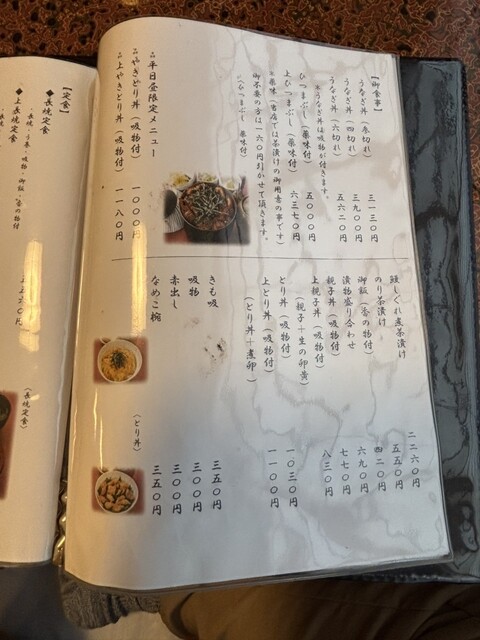 【御食事】
うなぎ丼(参切れ) 三一三〇円
うなぎ丼(四切れ) 三九〇〇円
うなぎ丼(六切れ) 五六二〇円
*うなぎ丼は吸物が付きます。
ひつまぶし(薬味付) 五〇〇〇円
上ひつまぶし(薬味付) 六三七〇円
※薬味(当店では茶漬けの御用意の事です)
御不要の方は一六〇円引かせて頂きます。
(ひつまぶし 薬味付)
平日昼限定メニュー
やきとり丼(吸物付) 一〇〇〇円
上やきとり丼(吸物付) 一一八〇円
鰻しぐれ煮茶漬け 二二六〇円
のり茶漬け 五五〇円
御飯(香の物付) 四二〇円
漬物盛り合わせ 六九〇円
親子丼(吸物付) 七七〇円
上親子丼(吸物付) 八三〇円
(親子+生の卵黄)
とり丼(吸物付) 一〇三〇円
上とり丼(吸物付) 一一〇〇円
(とり丼+煮卵)
きも吸 三五〇円
吸物 三〇〇円
赤出し 三〇〇円
なめこ椀 三五〇円
(とり丼)
【定食】
◆長焼定食
・長焼・う巻・吸物・御飯・香の物付
◆上長焼定食
(長焼定食)